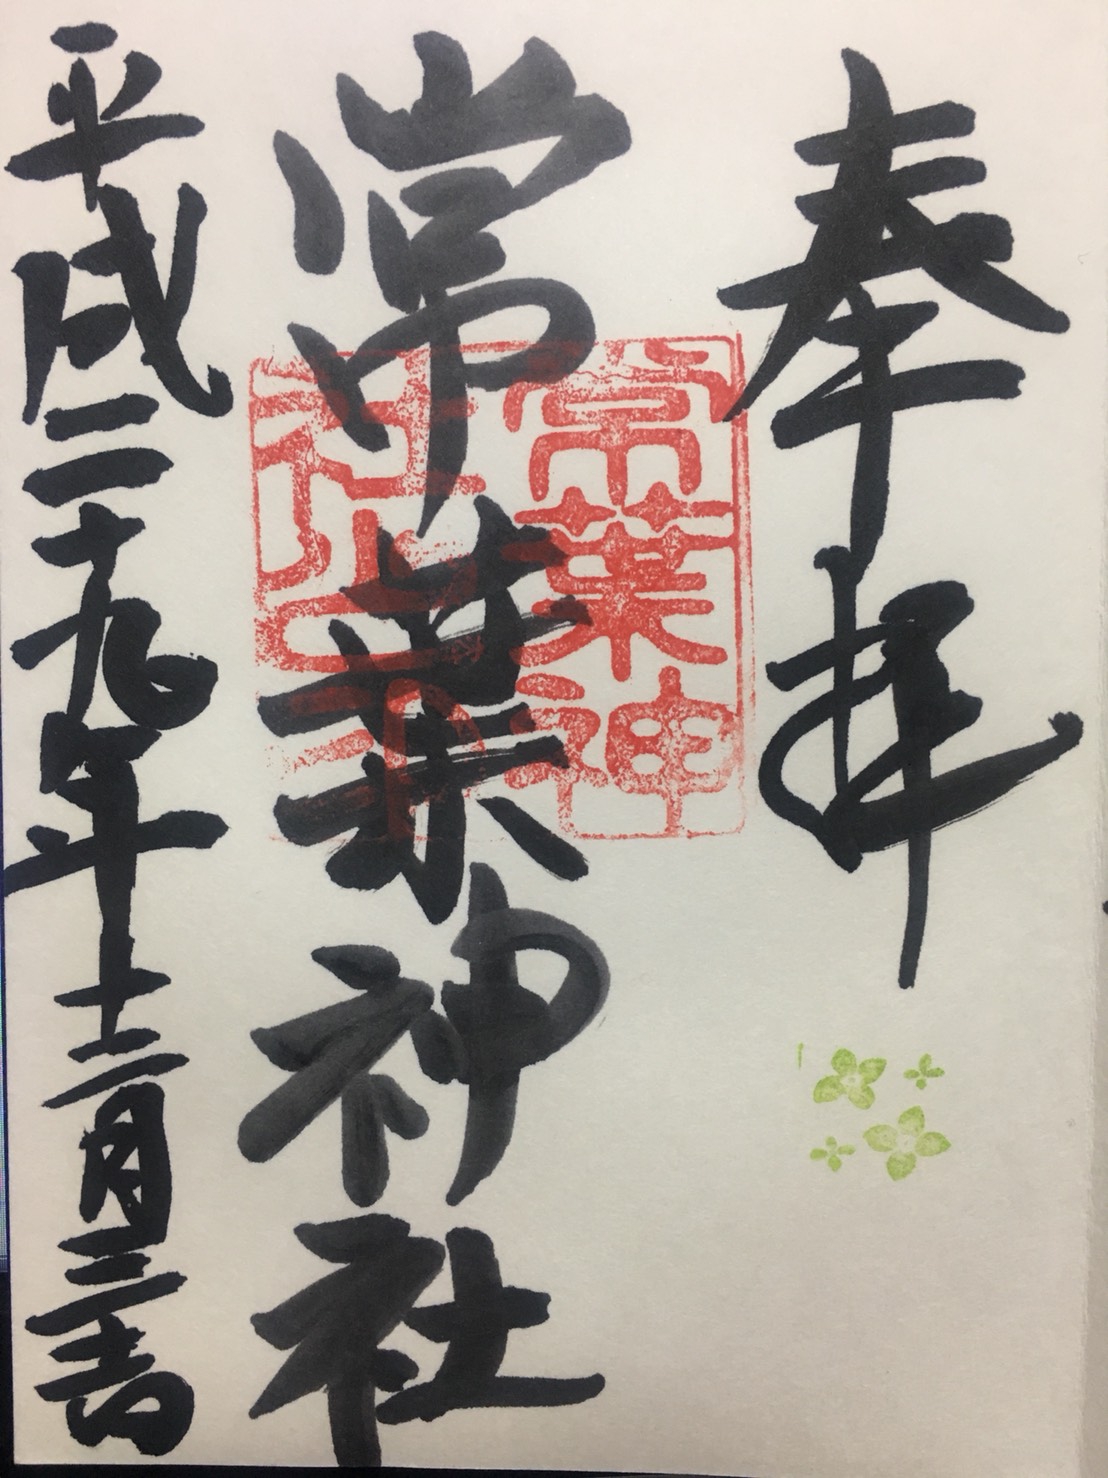 奉拝
常葉神社
常葉神
社之印
平成二十九年十二月三